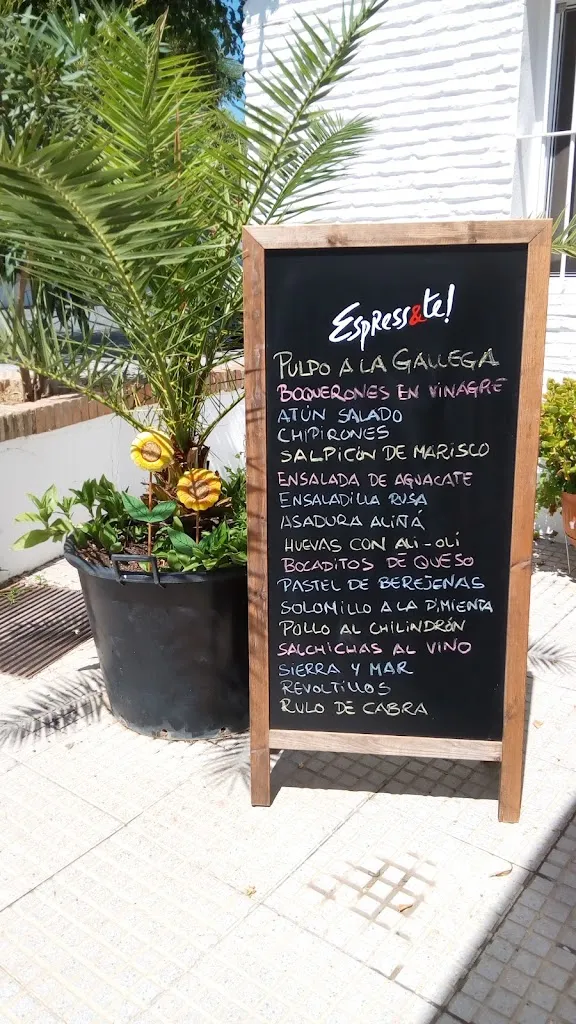 Espress&te!
PULPO A LA GALLEGA
BOQUERONES EN VINAGRE
ATÚN SALADO
CHIPIRONES
SALPICÓN DE MARISCO
ENSALADA DE AGUACATE
ENSALADILLA RUSA
ASADURA ALIÑÁ
HUEVAS CON ALI-OLI
BOCADITOS DE QUESO
PASTEL DE BEREJENAS
SOLOMILLO A LA PIMIENTA
POLLO AL CHILINDRÓN
SALCHICHAS AL VINO
SIERRA Y MAR
REVOLTILLOS
RULO DE CABRA